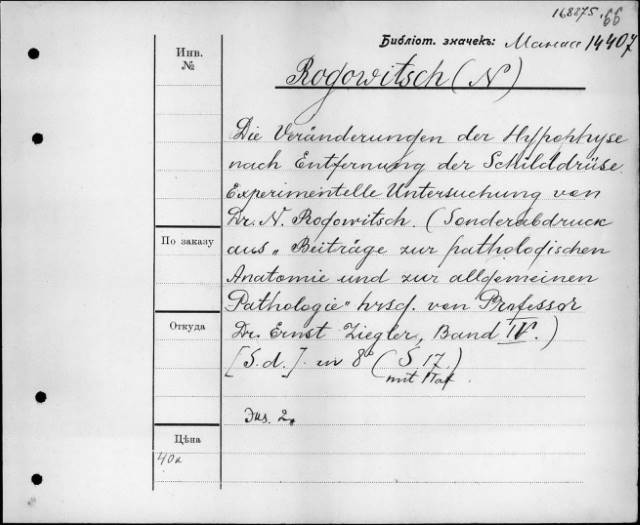 168875.66
Библіот. значекъ: Манаа 14407
Инв.
№
Rogowitsch (N)
Die Veränderungen der Hypophyse
nach Entfernung der Schilddrüse.
Experimentelle Untersuchung von
Dr. N. Rogowitsch. (Sonderabdruck
По заказу
aus „Beiträge zur pathologischen
Anatomie und zur allgemeinen
Pathologie“ hrsg. von Professor
Откуда
Dr. Ernst Ziegler, Band IV.)
[S.d.]. in 8º (S 17.)
mit Taf.
Экз. 2.
Цѣна
40к